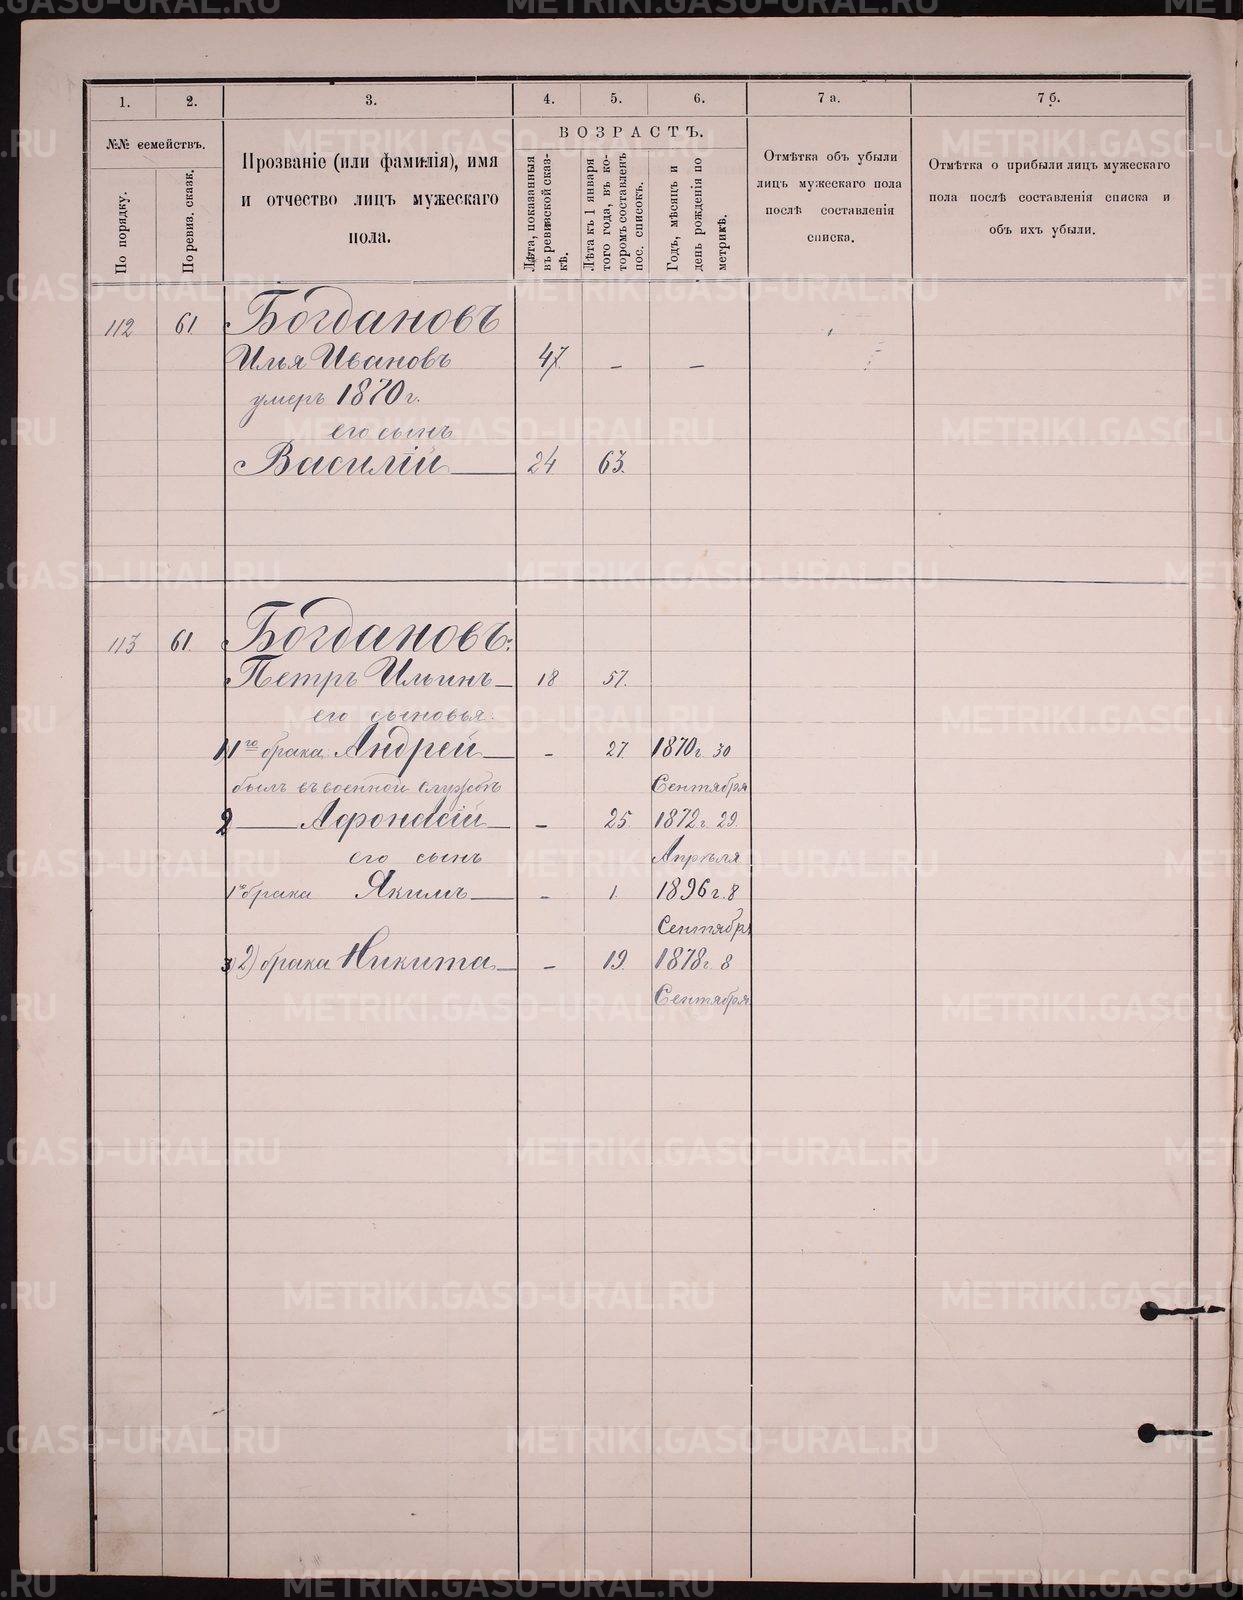 1. 2. 3. 4. 5. 6. 7 а. 7 б.
№№ семействъ.
По порядку.
По ревиз. сказк.
Прозваніе (или фамилія), имя
и отчество лицъ мужескаго
пола.
ВОЗРАСТЪ.
Лѣта, показанныя
въ ревизской сказ-
кѣ.
Лѣта къ 1 января
того года, въ ко-
торомъ составленъ
пос. списокъ.
Годъ, мѣсяцъ и
день рожденія по
метрикѣ.
Отмѣтка объ убыли
лицъ мужескаго пола
послѣ составленія
списка.
Отмѣтка о прибыли лицъ мужескаго
пола послѣ составленія списка и
объ ихъ убыли.
112 61. Богдановъ
Илья Ивановъ 47. – –
умеръ 1870 г.
его сынъ
Василій 24 63.
113 61. Богдановъ:
Петръ Ильинъ 18 57.
его сыновья:
1) 1го брака: Андрей - 27. 1870 г. 30
былъ въ военной службѣ Сентября
2 Афонасій - 25. 1872 г. 29.
его сынъ Апрѣля
1го брака Якимъ - 1. 1896 г. 8
Сентябр
3) 2) брака Никита - 19. 1878 г. 8
Сентября
METRIKI.GASO-URAL.RU